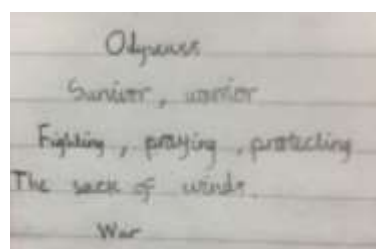 Odyseuss
Survivor, warrior
Fighting, praying, protecting
The sack of winds.
War